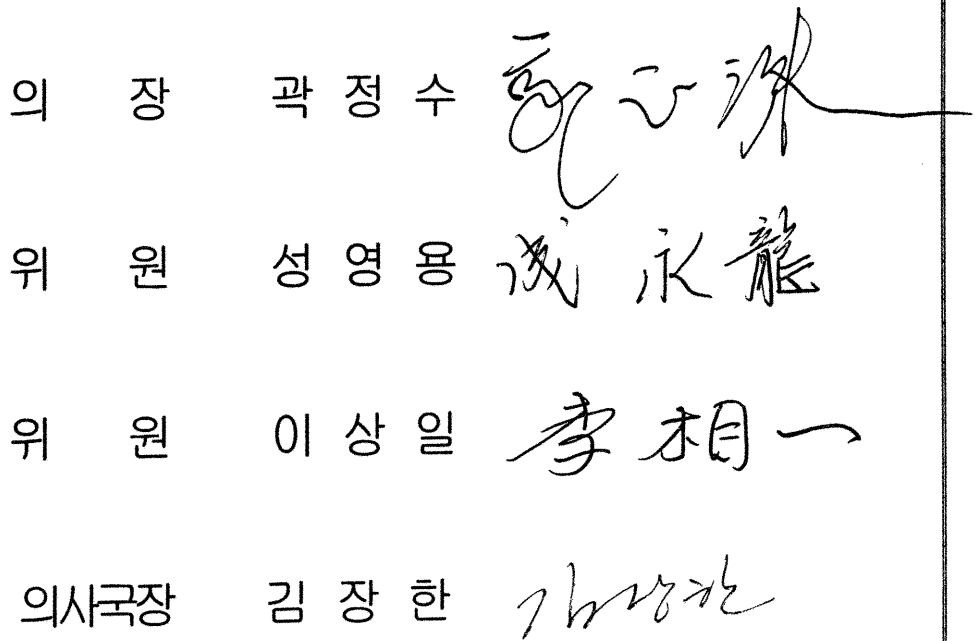 의 장 곽 정 수
위 원 성 영 용 成 永 龍
위 원 이 상 일 李 相 一
의사국장 김 장 한 김장한